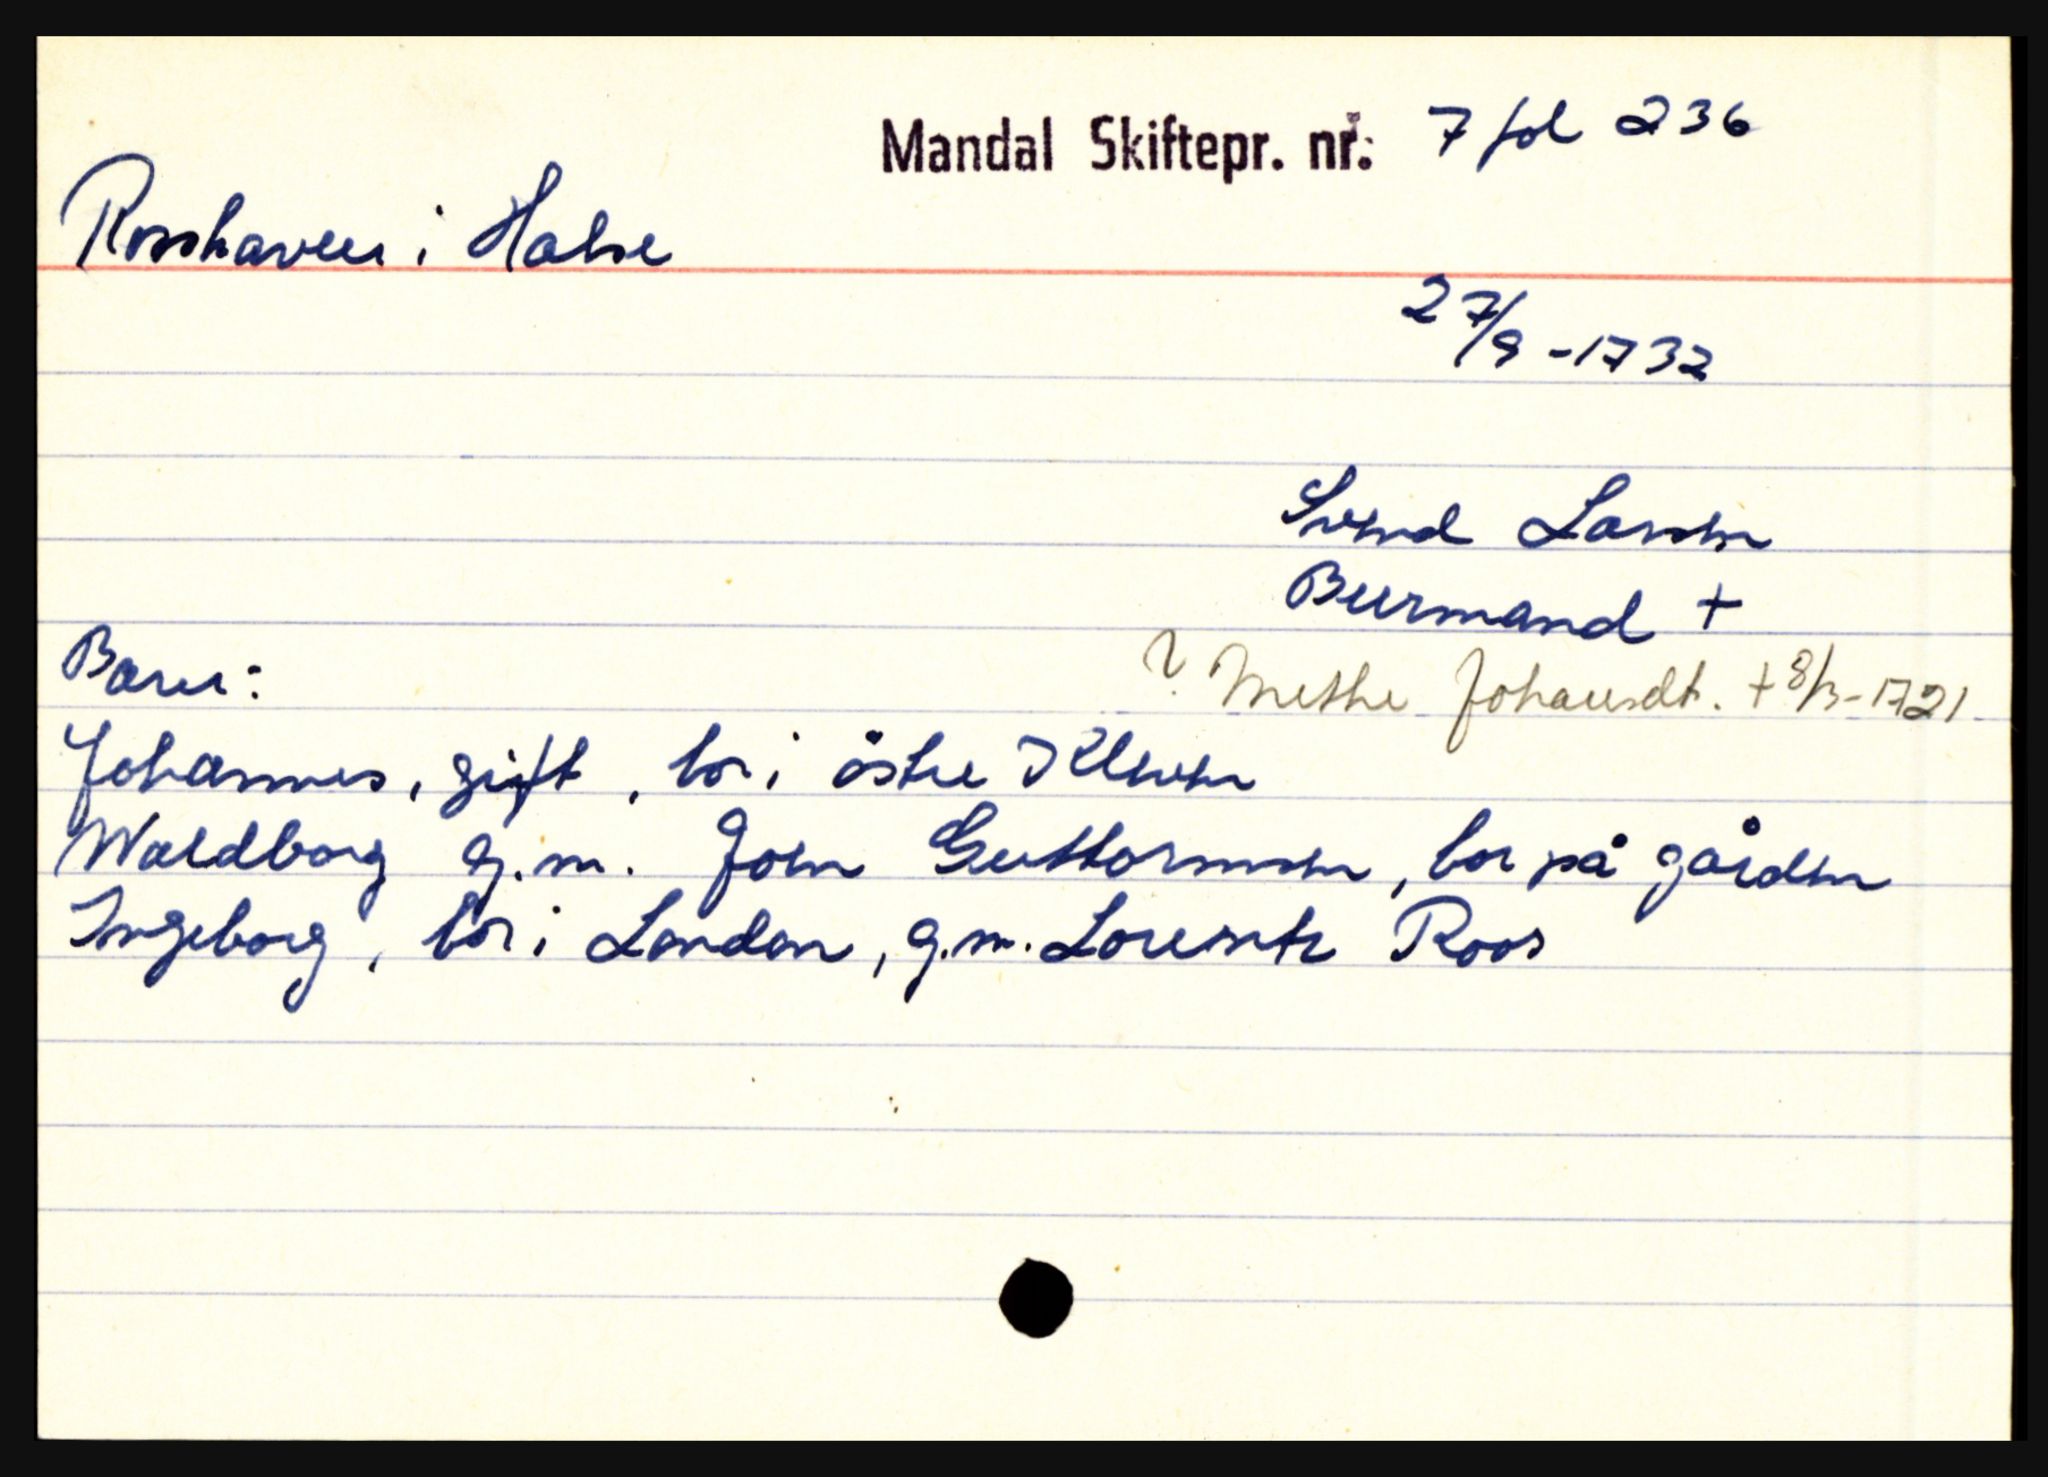 Mandal Skiftepr. nr: 7 fol 236
Rosshaven i Halse
27/9 -1732
Svend Larsen
Buermand +
? Methe Johansdt. + 8/3-1721
Barn:
Johannes, gift, bor i östre Kleven
Waldborg g.m. Joen Guttormsen, bor på gården
Ingeborg, bor i London, g.m. Lorentz Roos